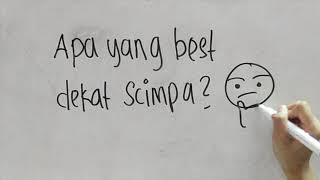 Apa yang best
dekat Scimpa?